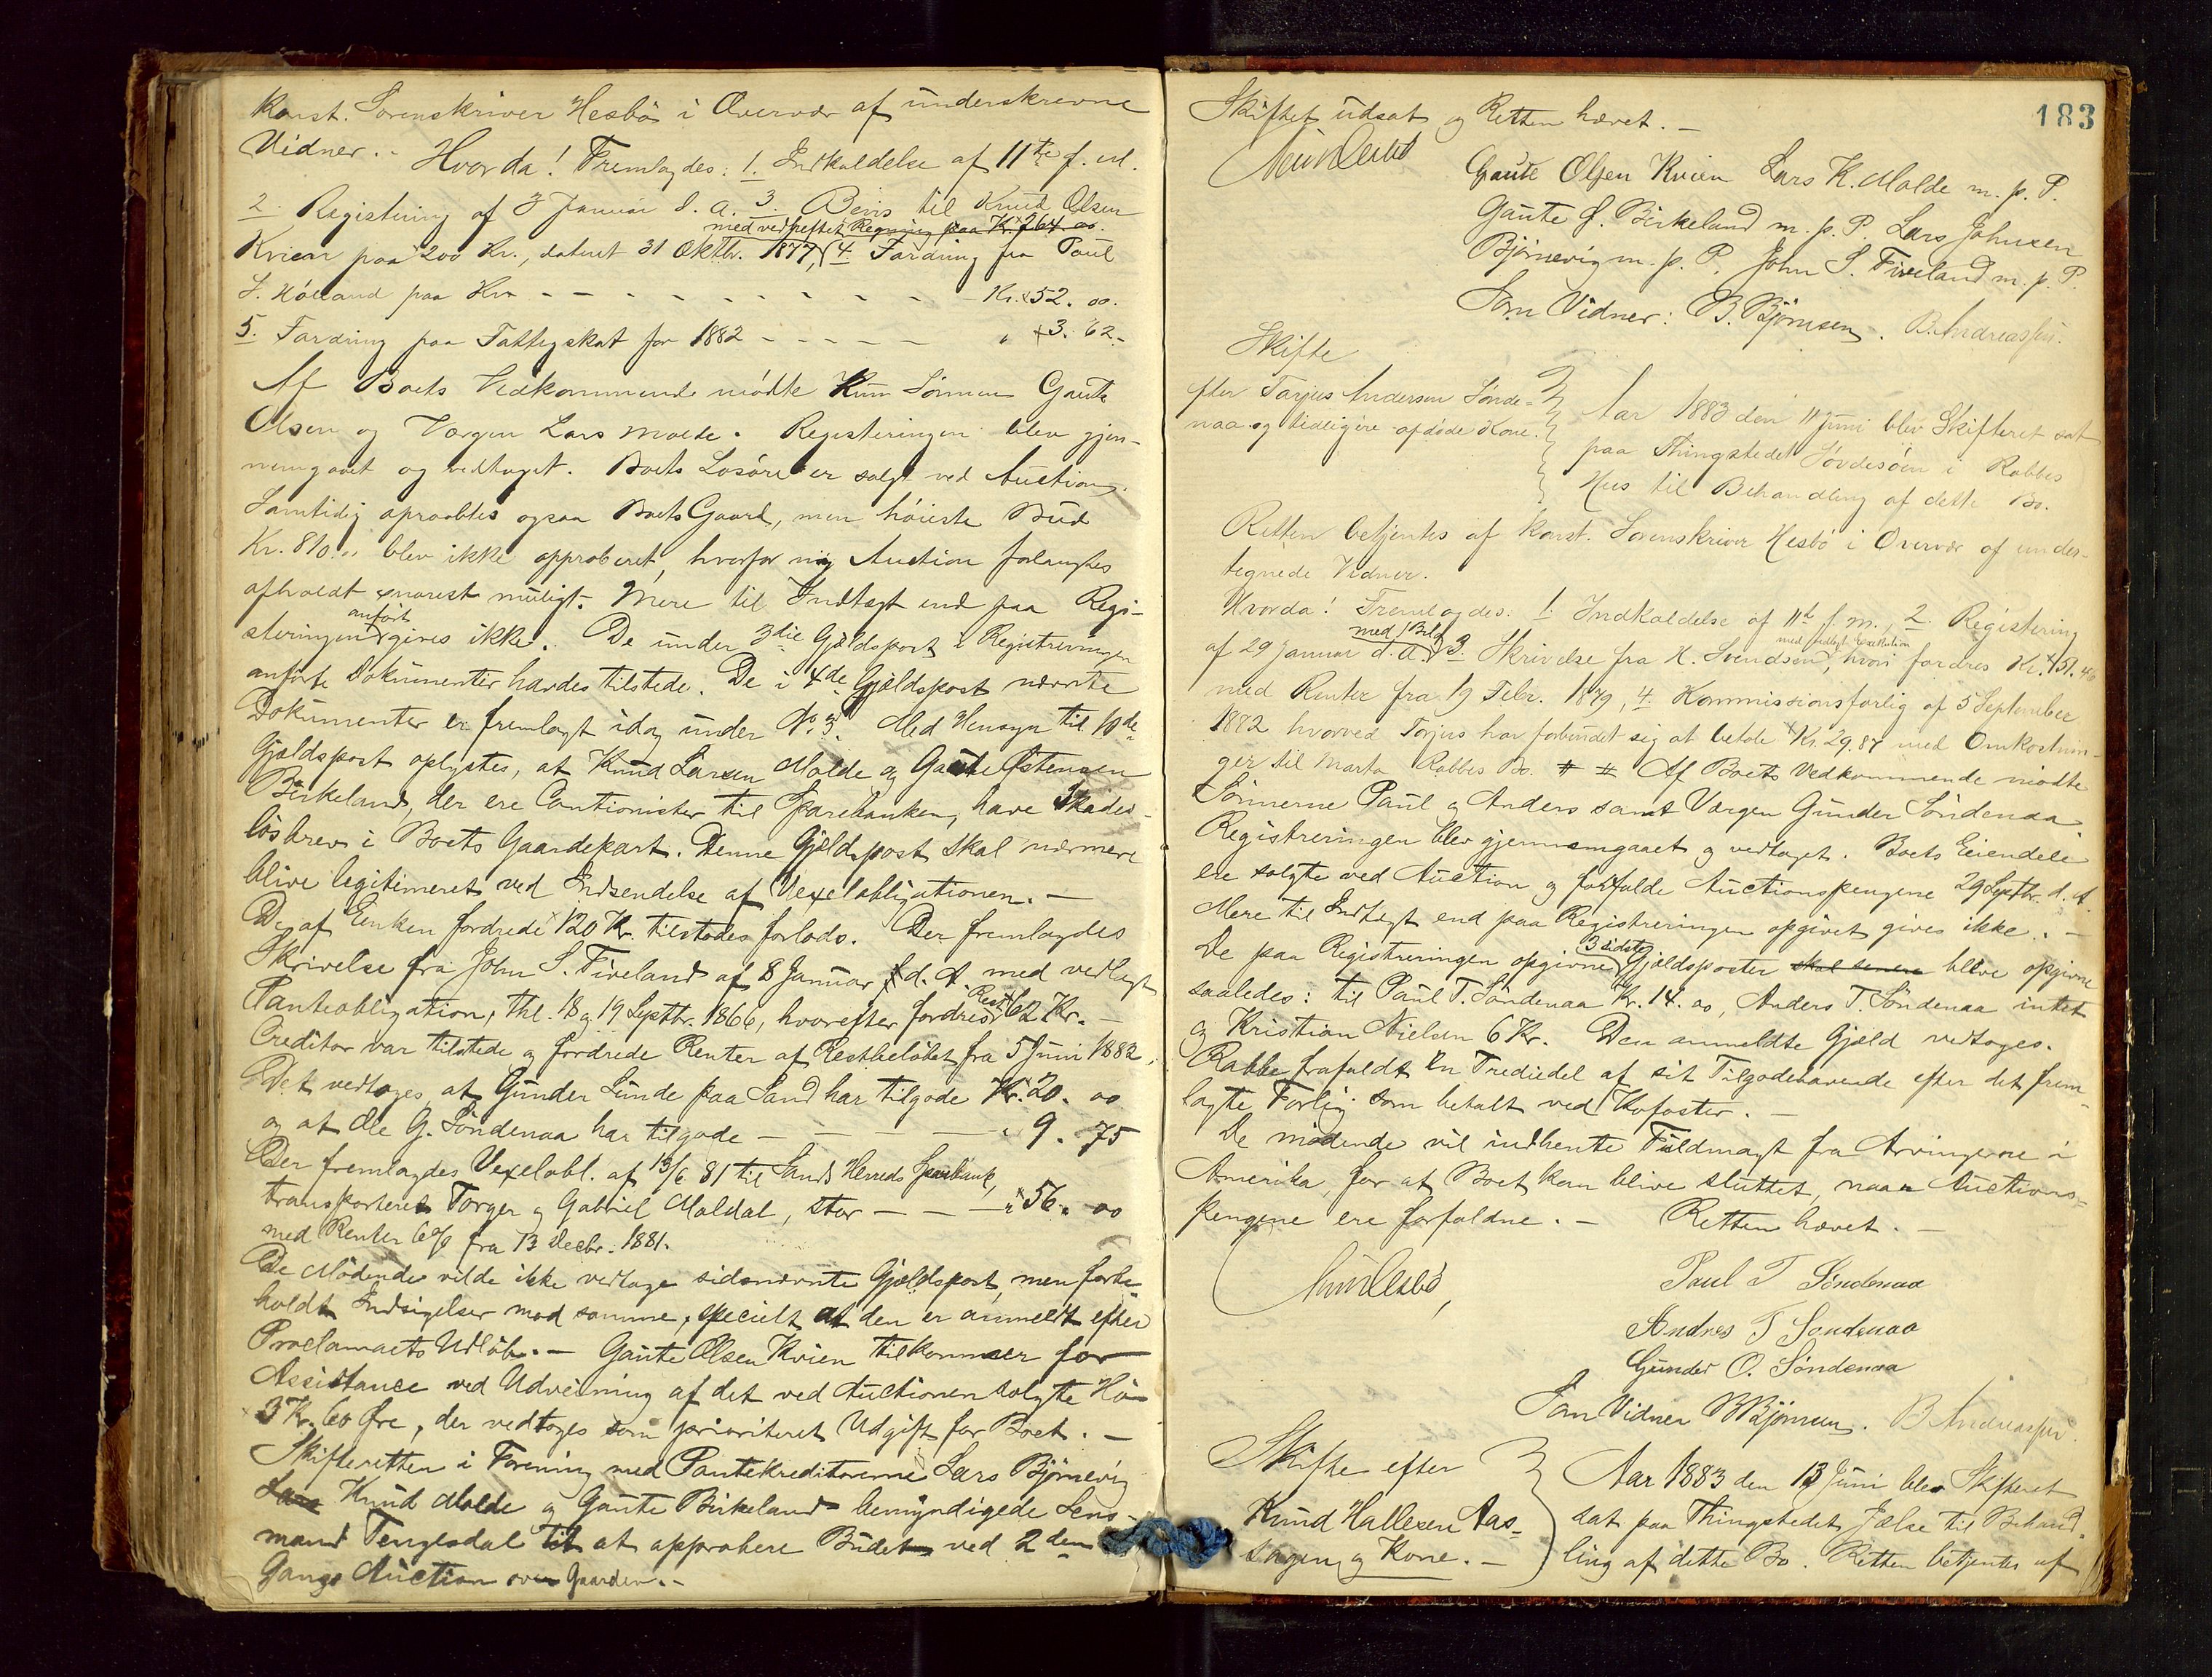 Konst. Sorenskriver Hesbö i Overvær af underskrevne
Vidner. - Hvorda! Fremlagdes: 1. Indkaldelse af 11te f. M.
2. Registring af 3 Januar d. A. 3. Bevis til Knud Olsen
med vedheftet Regning paa Kr. 264.00.
Kvien paa 200 Kr., dateret 31 Oktbr. 1877, 4. Fordring fra Paul
J. Hölland paa Kr - - - - - - - - - Kr. 52. 00.
5. Fordring paa Fattigskat for 1882 - - - - - " 3. 62.
Af Boets Vedkommende mödte Kun Sönnen Gaute
Olsen og Værgen Lars Molde. Registeringen blev gjen-
nemgaaet og vedtaget. Boets Lösöre er solgt ved Auction.
Samtidig opraabtes ogsaa Boets Gaard, men höieste Bud
Kr. 810.00 blev ikke approberet, hvorfor ny Auction forlanges
afholdt snarest muligt. Mere til Indtægt end paa Regi-
steringen anfört gives ikke. De under 3die Gjældspost i Registreringen
anförte Dokumenter havdes tilstede. De i 4de Gjældspost nævnte
Dokumenter er fremlagt idag under No. 3. Med Hensyn til 10de
Gjældspost oplystes, at Knud Larsen Molde og Gaute Östensen
Birkeland, der ere Cautionister til Sparebanken, have Skades-
lösbrev i Boets Gaardepart. Denne Gjældspost skal nærmere
blive legitimeret ved Indsendelse af Vexelobligationen. -
De af Enken fordrede 120 Kr. tilstodes forlods. Der fremlagdes
Skrivelse fra John S. Fiveland af 8 Januar d. A. med vedlagt
Panteobligation, thl. 18 og 19 Septbr. 1866, hvorefter fordres Rest 62 Kr. -
Creditor var tilstede og fordrede Renter af Restbelöbet fra 5 Juni 1882.
Det vedtoges, at Gunder Lunde paa Sand har tilgode Kr. 20. 00
og at Ole G. Söndenaa har tilgode - - - - " 9. 75
Der fremlagdes Vexelobl. af 13/6 81 til Sands Herreds Sparebank,
transporteret Torger og Gabriel Moldal, stor - - - " 56. 00
med Renter 6% fra 13 Decbr. 1881.
De Mödende vilde ikke vedtage sidsnævnte Gjældspost, men forbe-
holdt Indsigelser mod samme, specielt at den er anmeldt efter
Proclamaets Udlöb. - Gaute Olsen Kvien tilkommer for
Assistance ved Udveining af det ved Auctionen solgte Hö
3 Kr. 60 Öre, der vedtoges som prioriteret Udgift for Boet. -
Skifteretten i Forening med Pantekreditorerne Lars Björnevig
Lars Knud Molde og Gaute Birkeland bemyndigede Lens-
mand Tengesdal til at approbere Budet ved 2den
Gangs Auction over Gaarden. -
183
Skiftet udsat og Retten hævet. -
Gaute Olsen Kvien Lars K. Molde m. p. P.
Gaute Ö. Birkeland m. p. P. Lars Johnsen
Björnevig m. p. P. John S. Fiveland m. p. P.
Som Vidner: B. Björnsen. B. Andreassen.
Skifte
efter Tarjus Andersen Sönde-
naa og tidligere afdöde Kone.
Aar 1883 den 11 Juni blev Skifteret sat
paa Thingstedet Sövdesöen i Rabbes
Hus til Behandling af dette Bo.
Retten betjentes af konst. Sorenskriver Hesbö i Overvær af under-
tegnede Vidner.
Hvorda! Fremlagdes: 1. Indkaldelse af 11te f. m., 2. Registering
af 29 Januar d. A. med Bilag 3. Skrivelse fra H. Svendsen, hvori fordres Kr. 151.46
med Renter fra 19 Febr. 1879, 4. Kommissionsforlig af 5 September
1882 hvorved Torjus har forbundet sig at betale Kr. 29.87 med Omkostnin-
ger til Marta Rabbes Bo. Af Boets Vedkommende mödte
Sönnerne Paul og Anders samt Værgen Gunder Söndenaa.
Registreringen blev gjennemgaaet og vedtaget. Boets Eiendele
ere solgte ved Auction og forfalde Auctionspengene 29 Septbr. d. A.
Mere til Indtægt end paa Registreringen opgivet gives ikke. -
De paa Registreringen opgivne 3 sidste Gjældsposter skal senere blive opgivne
saaledes: til Paul T. Söndenaa Kr. 14. 00, Anders T. Söndenaa intet
og Kristian Nielsen 6 Kr. Den anmeldte Gjæld vedtoges.
Rabbe frafaldt en Trediedel af sit Tilgodehavende efter det frem-
lagte Forlig som betalt ved Kofoster. -
De mödende vil indhente Fuldmagt fra Arvingerne i
Amerika, for at Boet kan blive sluttet, naar Auctions-
pengene ere forfaldne. - Retten hævet. -
Paul T Söndenaa
Andres T Söndenaa
Gunder O. Söndenaa
Som Vidner B Björnsen. B Andreassen.
Skifte efter
Knud Hallesen Aas-
sagen og Kone. -
Aar 1883 den 13 Juni blev Skifteret
sat paa Thingstedet Jælse til Behand-
ling af dette Bo. Retten betjentes af